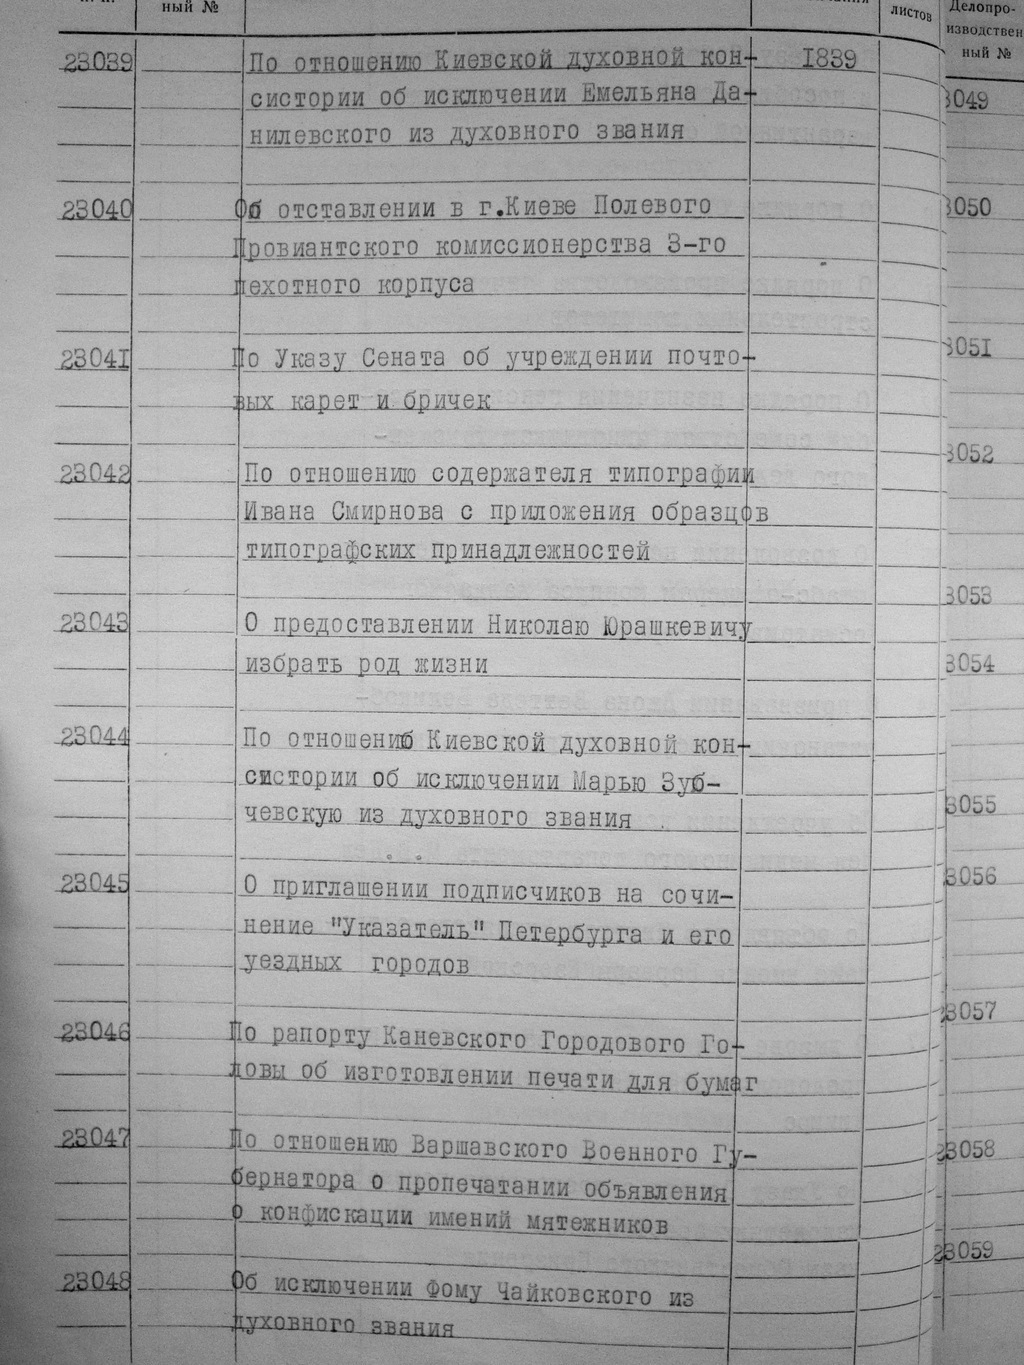 ный №
листов
Делопро-
изводствен
ный №
23039 По отношению Киевской духовной кон- 1839
систории об исключении Емельяна Да-
нилевского из духовного звания
23040 Об отставлении в г.Киеве Полевого
Провиантского комиссионерства 3-го
пехотного корпуса
23041 По Указу Сената об учреждении почто-
вых карет и бричек
23042 По отношению содержателя типографии
Ивана Смирнова с приложения образцов
типографских принадлежностей
23043 О предоставлении Николаю Юрашкевичу
избрать род жизни
23044 По отношению Киевской духовной кон-
систории об исключении Марью Зуб-
чевскую из духовного звания
23045 О приглашении подписчиков на сочи-
нение "Указатель" Петербурга и его
уездных городов
23046 По рапорту Каневского Городового Го-
ловы об изготовлении печати для бумаг
23047 По отношению Варшавского Военного Гу-
бернатора о пропечатании объявления
о конфискации имений мятежников
23048 Об исключении Фому Чайковского из
духовного звания
3049
3050
3051
3052
3053
3054
3055
3056
3057
23058
23059